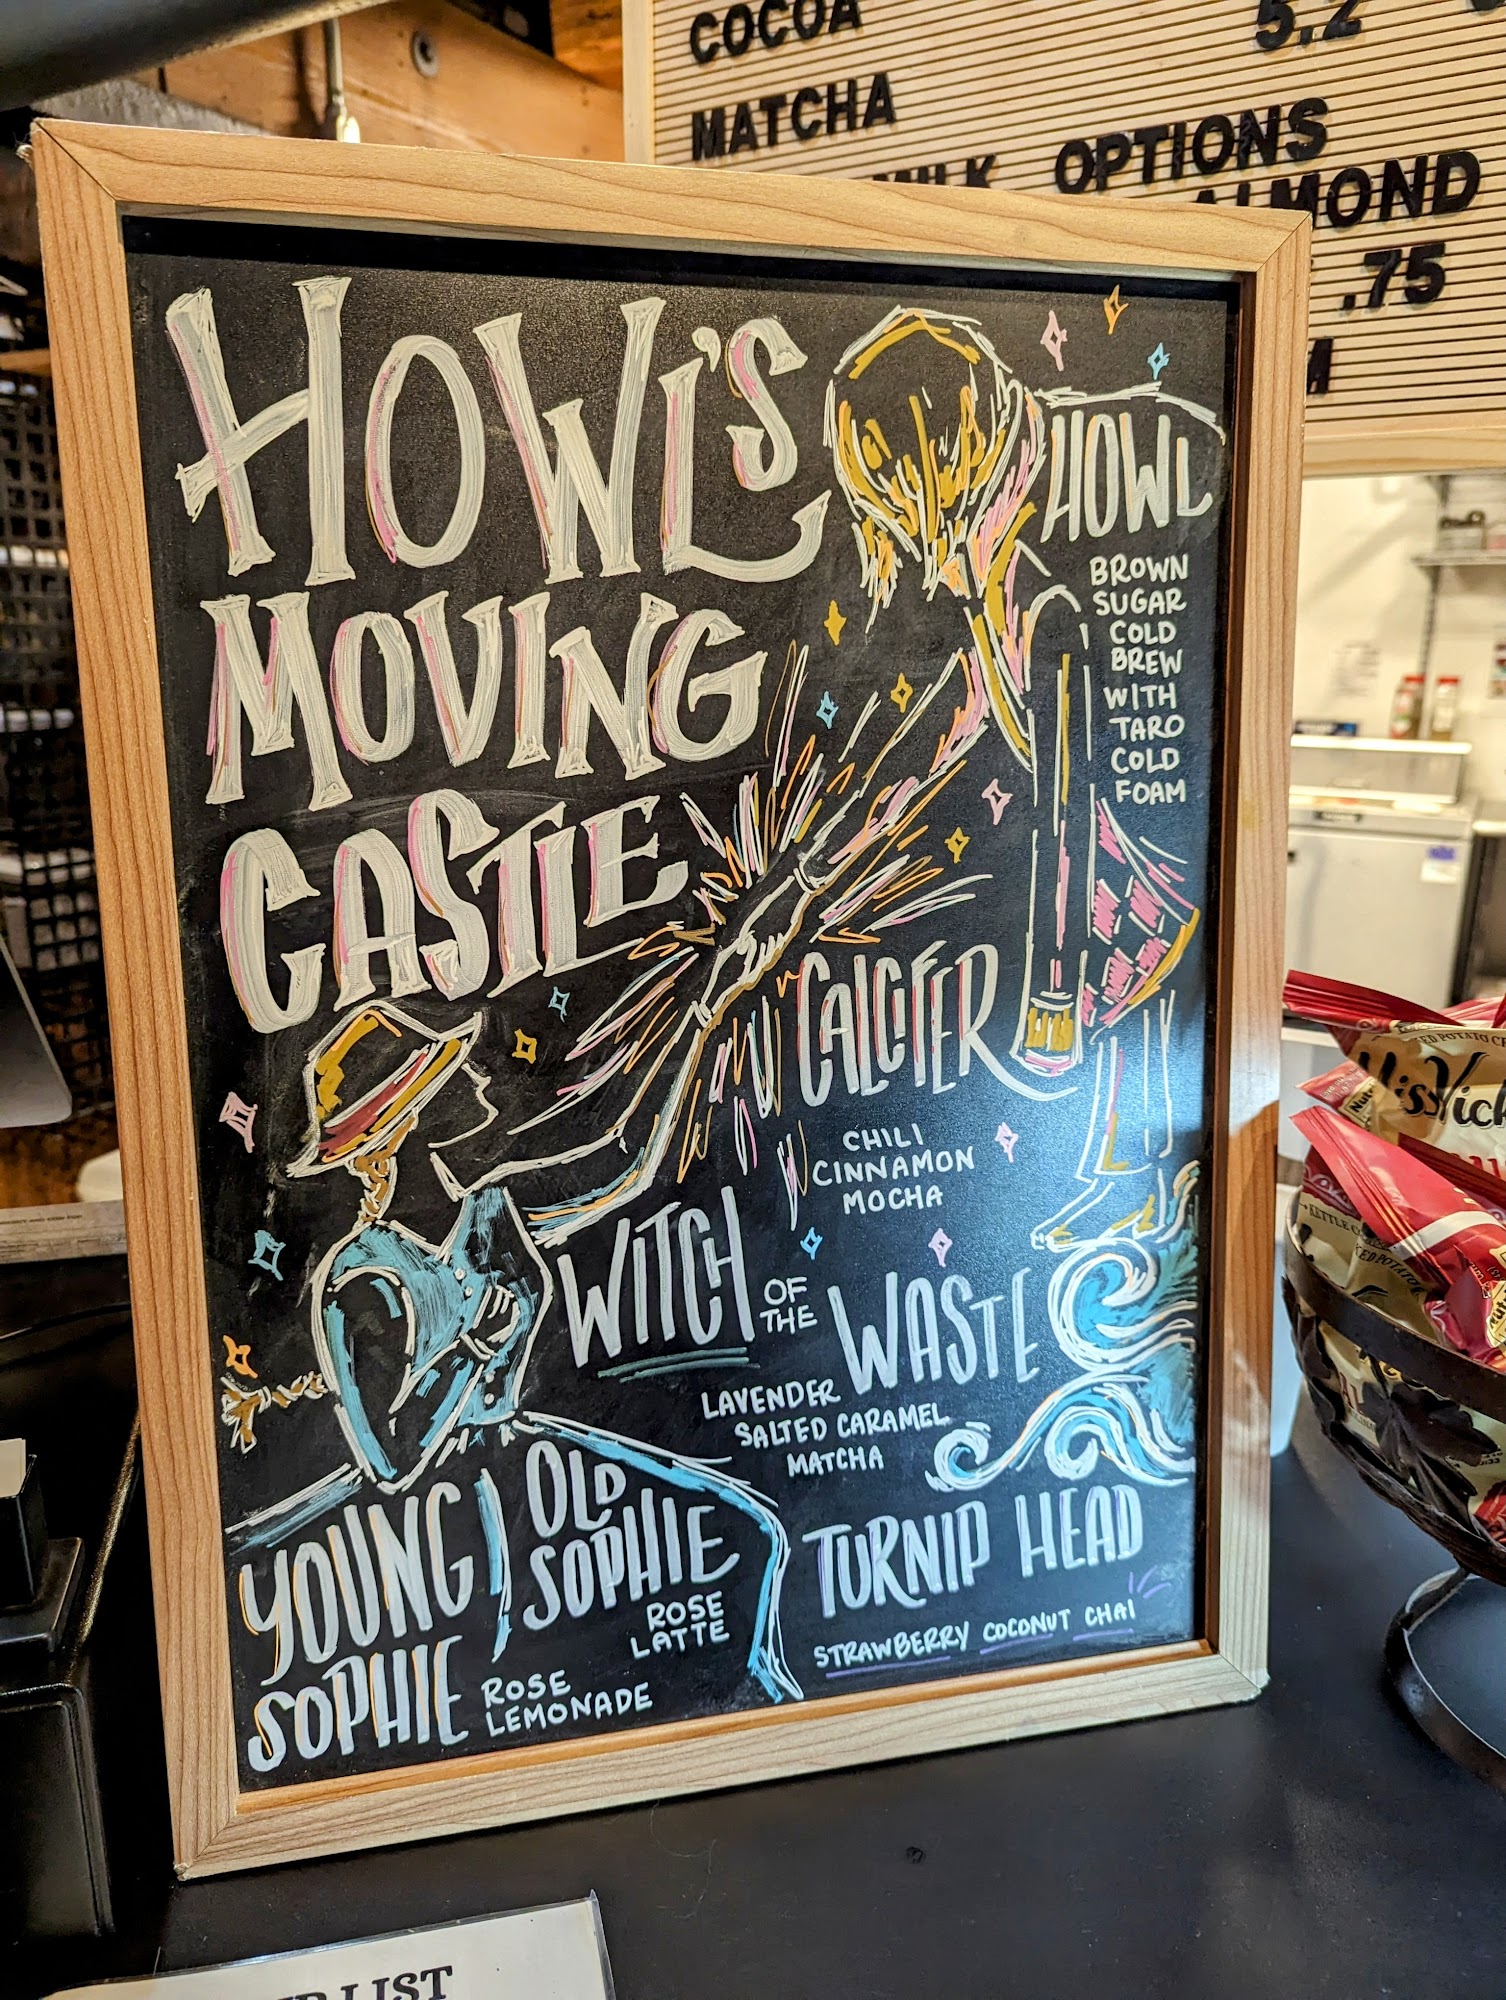 COCOA 5.2
MATCHA
MILK OPTIONS
ALMOND
.75
HOWL'S
MOVING
CASTLE
HOWL
BROWN
SUGAR
COLD
BREW
WITH
TARO
COLD
FOAM
CALCIFER
CHILI
CINNAMON
MOCHA
WITCH OF THE WASTE
LAVENDER
SALTED CARAMEL
MATCHA
YOUNG
SOPHIE
ROSE
LEMONADE
OLD
SOPHIE
ROSE
LATTE
TURNIP HEAD
STRAWBERRY COCONUT CHAI
LIST